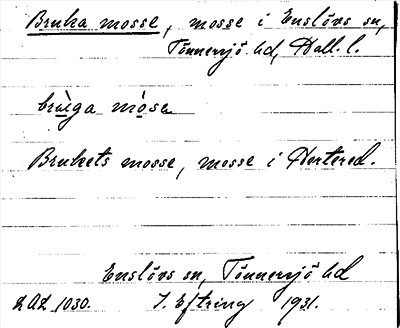 Bruka mosse, mosse i Enslövs sn,
Tönnersjö hd, Hall. l.
bruiga mòsa
Brukets mosse, mosse i Hertered.
Enslövs sn, Tönnersjö hd
LAL 1030. J. Eftring 1931.